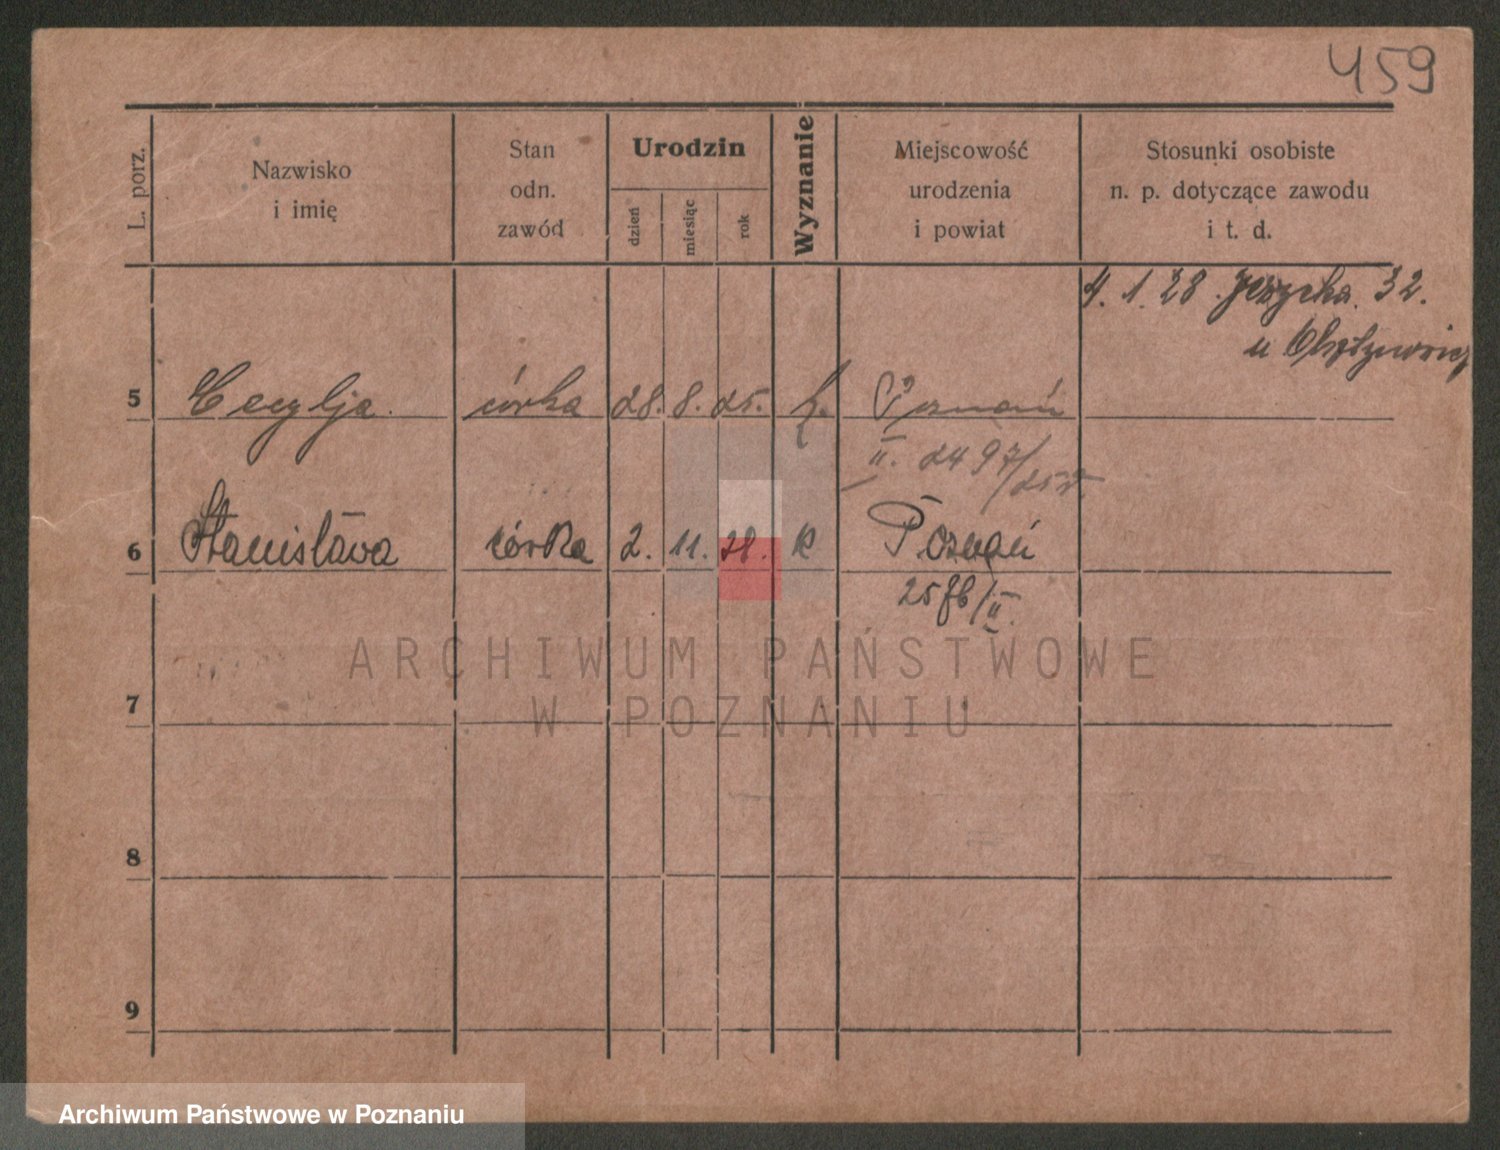 459
L. porz.
Nazwisko
i imię
Stan
odn.
zawód
Urodzin
dzień
miesiąc
rok
Wyznanie
Miejscowość
urodzenia
i powiat
Stosunki osobiste
n. p. dotyczące zawodu
i t. d.
4. 1. 28. 32.
u
5 Cecylja córka 28. 8. 25. k. Poznań
II. 2497/25
6 Stanisława córka 2. 11. 28. k Poznań
II.
7
8
9
ARCHIWUM PAŃSTWOWE
W POZNANIU
Archiwum Państwowe w Poznaniu